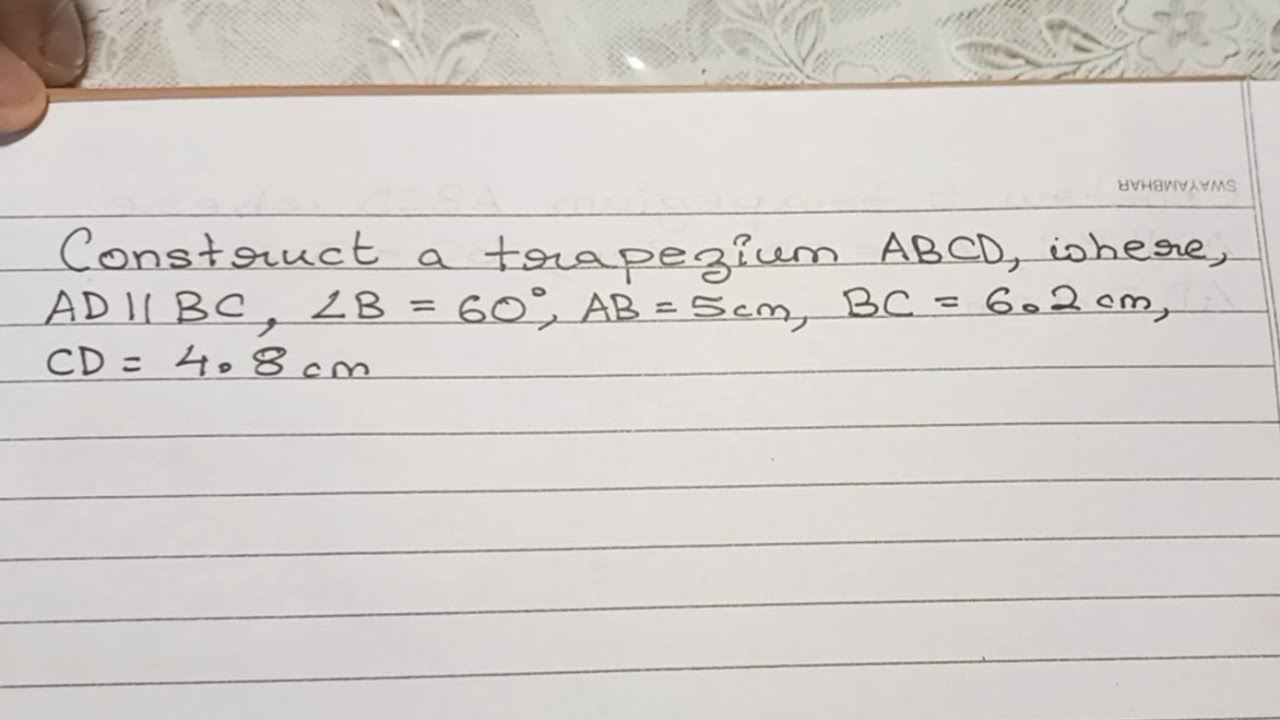 SWAYAMBHAR
Construct a trapezium ABCD, where,
AD || BC, ∠B = 60°, AB = 5cm, BC = 6.2 cm,
CD = 4.8 cm